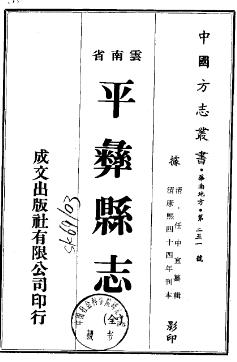 中國方志叢書・華南地方・第二五一號
據清・任中宜纂輯
清康熙四十四年刊本
影印
雲南省
平彝縣志
(全)
成文出版社有限公司印行